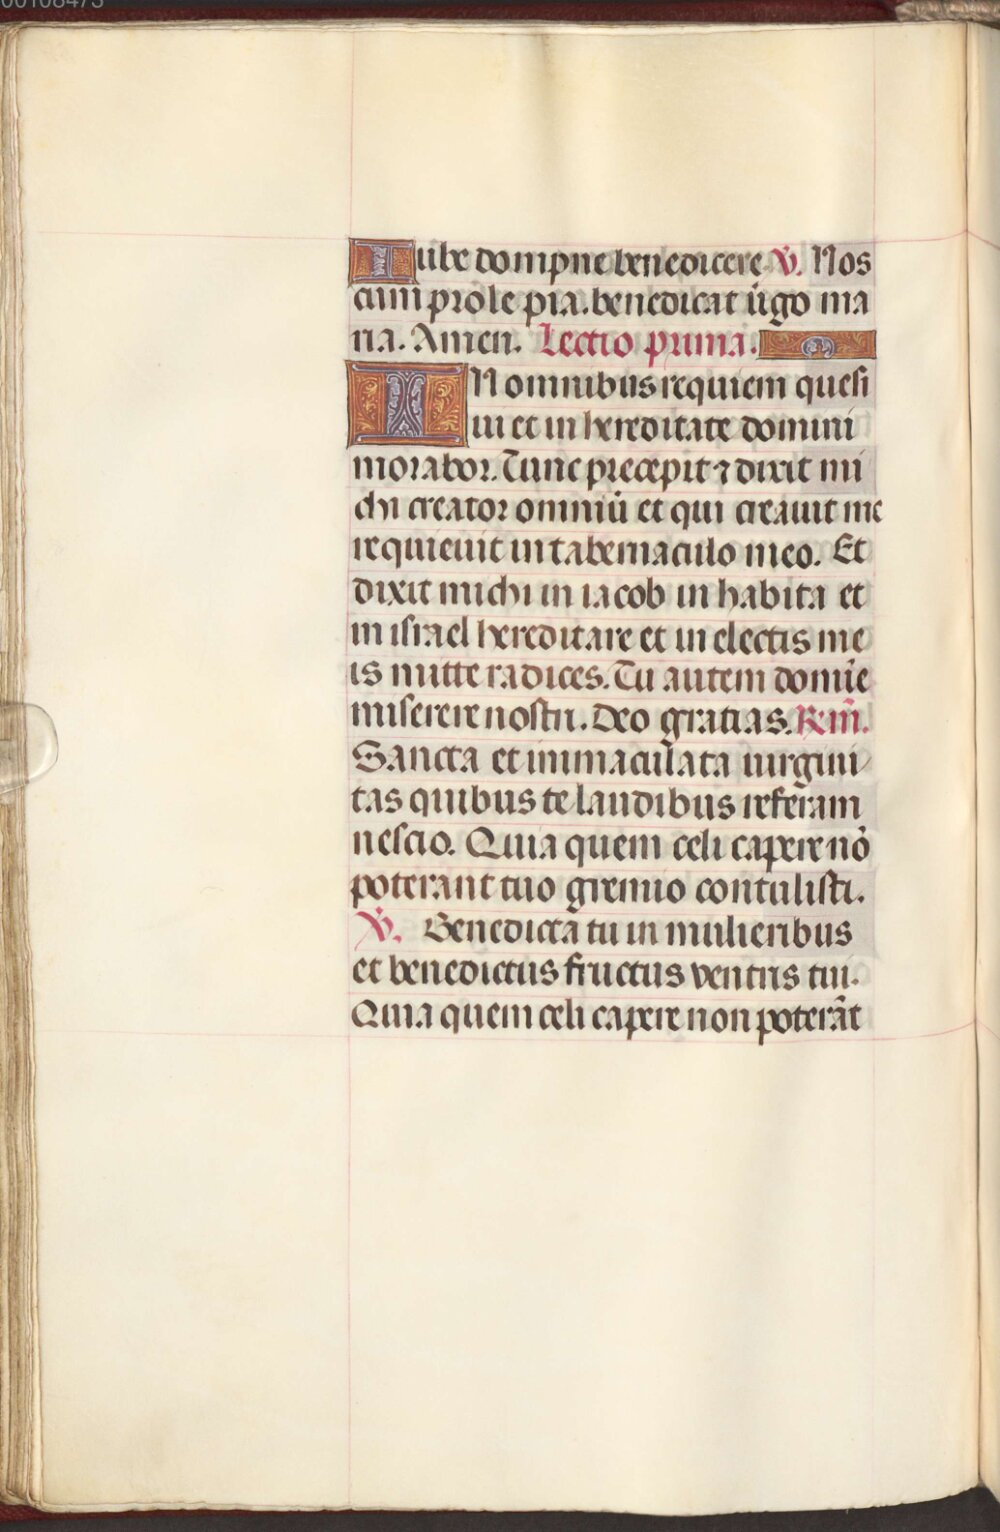 00108473
Iube dompne benedicere. V. Nos
cum prole pia. benedicat ũgo ma
ria. Amen. Lectio prima.
IN omnibus requiem quesi
ui et in hereditate domini
morabor. Tunc precepit ⁊ dixit mi
chi creator omniũ et qui creauit me
requieuit in tabernaculo meo. Et
dixit michi in iacob in habita et
in israel hereditare et in electis me
is mitte radices. Tu autem domĩe
miserere nostri. Deo gratias.
Sancta et immaculata uirgini
tas quibus te laudibus referam
nescio. Quia quem celi capere nõ
poterant tuo gremio contulisti.
V. Benedicta tu in mulieribus
et benedictus fructus ventris tui.
Quia quem celi capere non poterãt